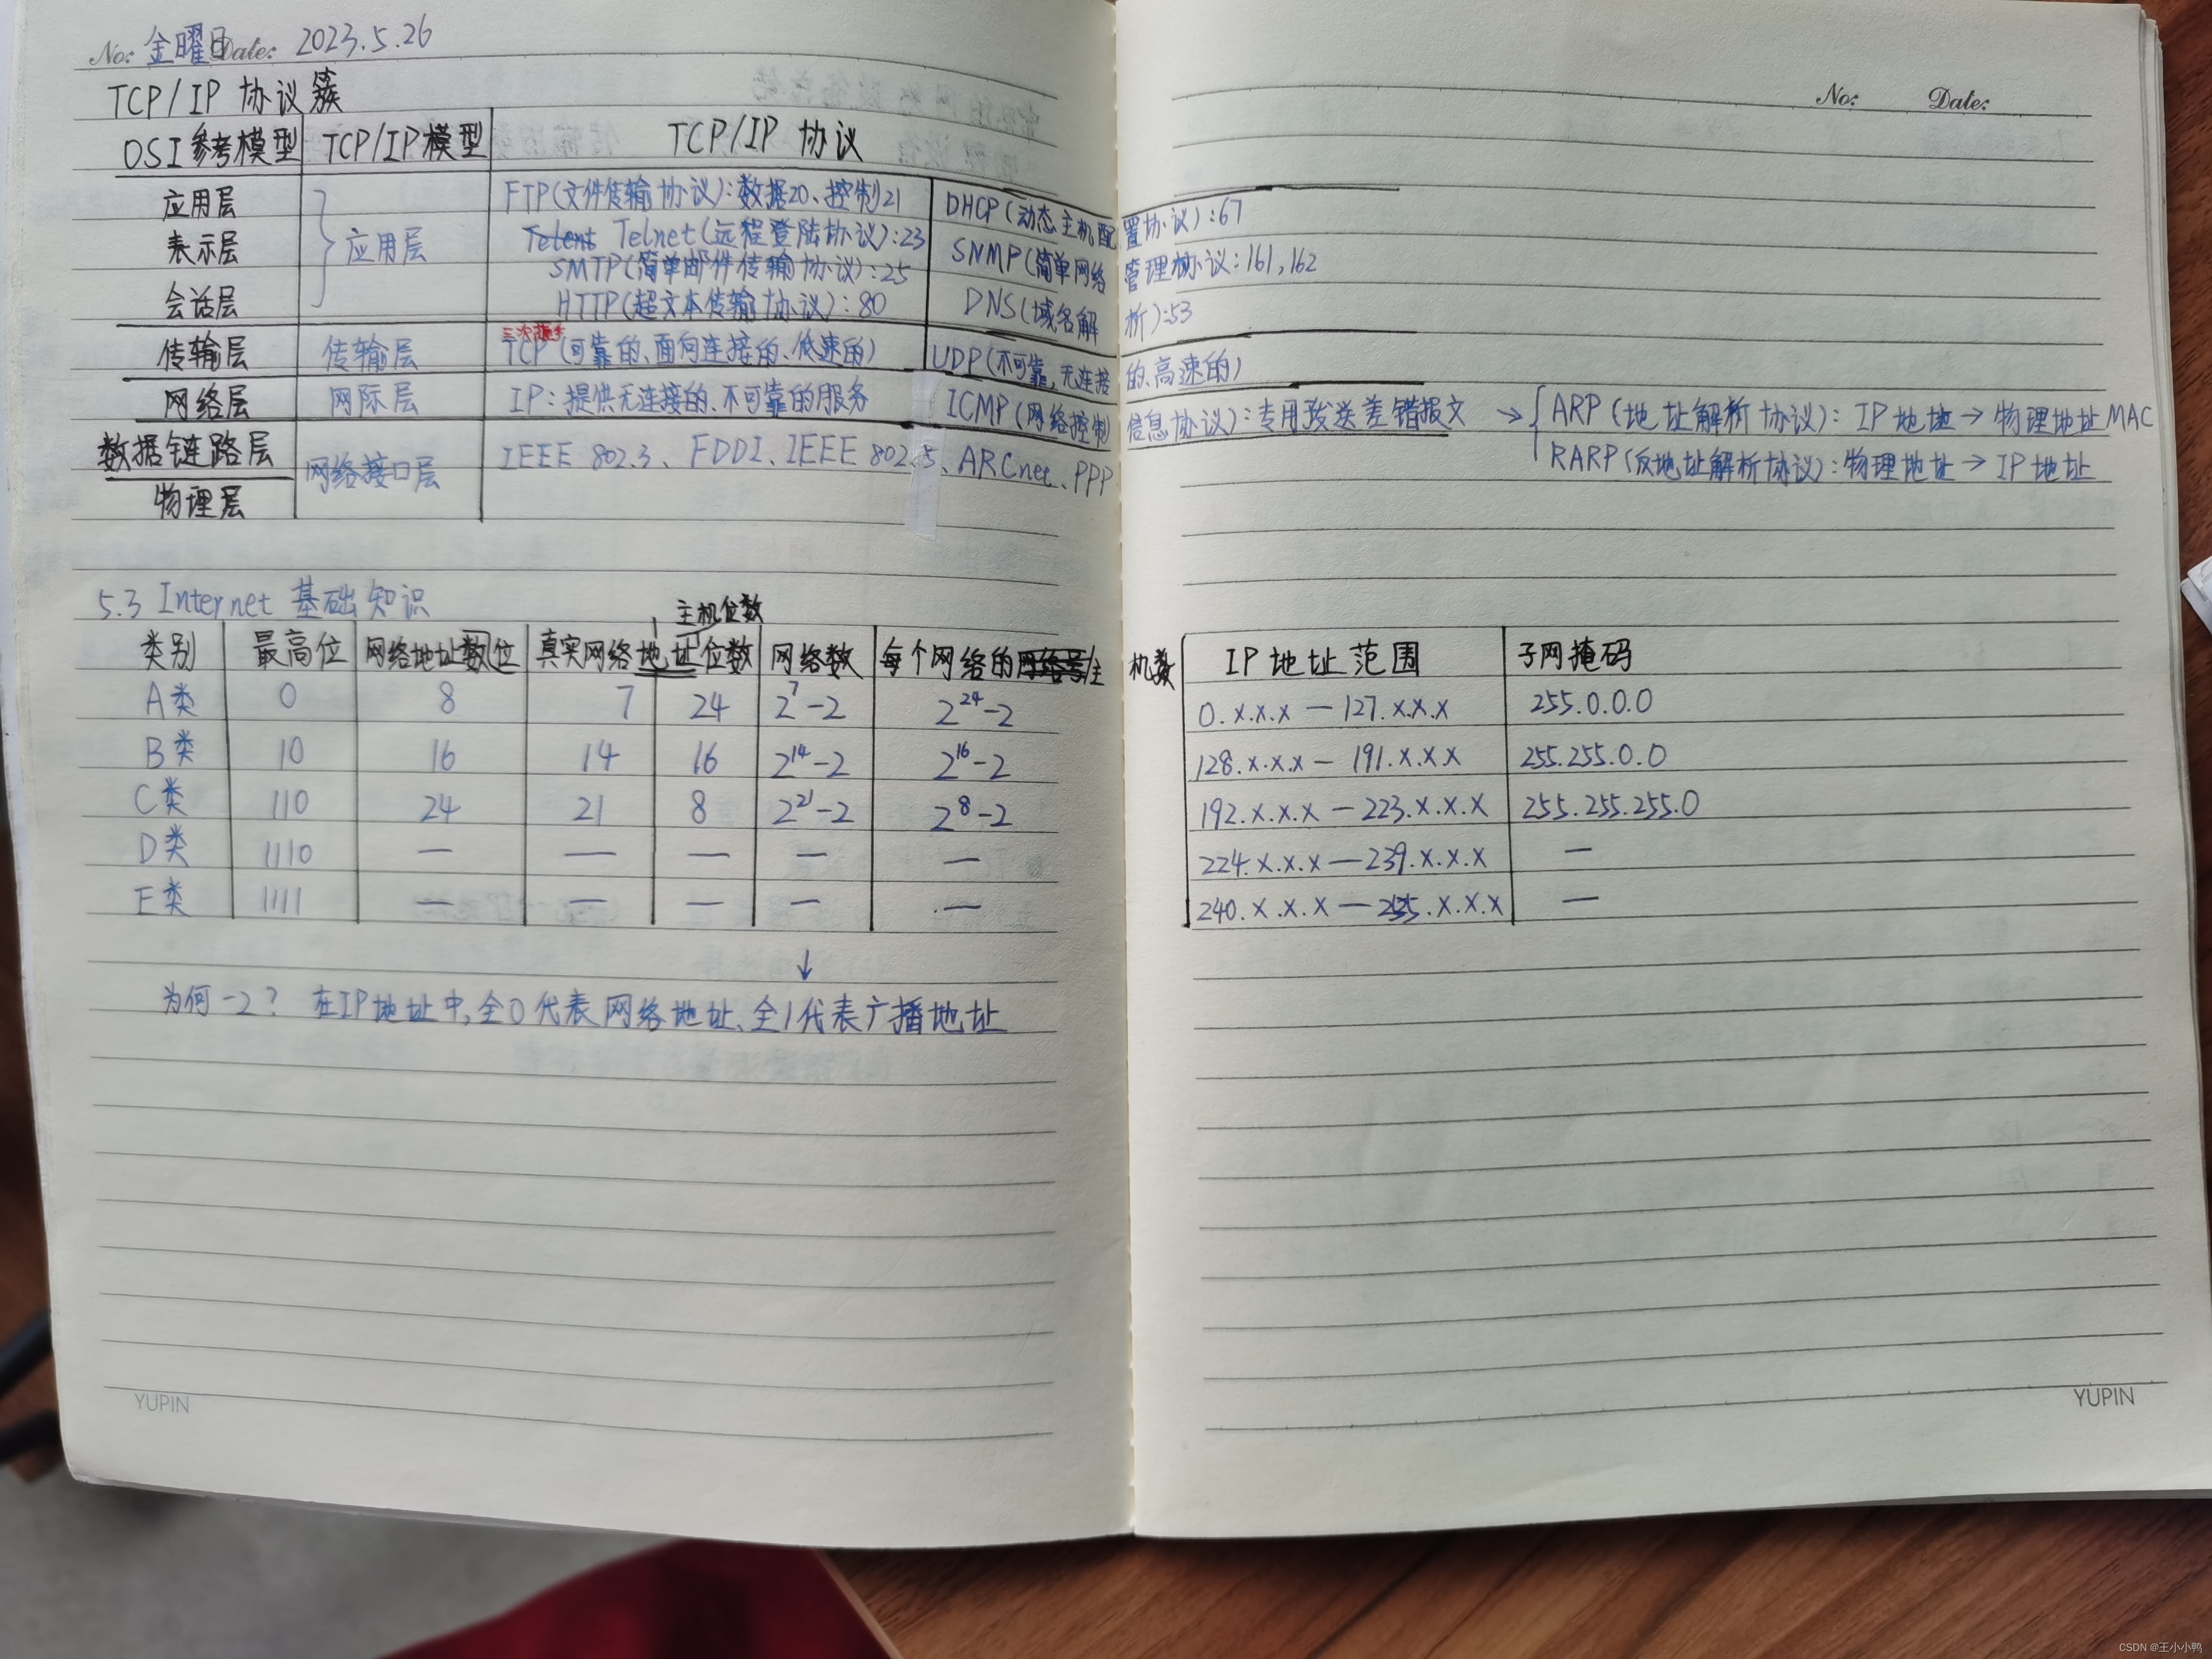 No: 金曜日 Date: 2023.5.26
No: Date:
TCP/IP 协议簇
OSI参考模型 TCP/IP模型 TCP/IP 协议
应用层 应用层 FTP(文件传输协议):数据20、控制21 DHCP(动态主机配置协议):67
表示层 Telnet(远程登陆协议):23 SNMP(简单网络管理协议:161,162
SMTP(简单邮件传输协议):25
会话层 HTTP(超文本传输协议):80 DNS(域名解析):53
三次握手
传输层 传输层 TCP(可靠的、面向连接的、低速的) UDP(不可靠,无连接的、高速的)
网络层 网际层 IP:提供无连接的、不可靠的服务 ICMP(网络控制信息协议):专用发送差错报文 → ARP(地址解析协议):IP地址→物理地址MAC
RARP(反地址解析协议):物理地址→IP地址
数据链路层 网络接口层 IEEE 802.3、FDDI、IEEE 802.5、ARCnet、PPP
物理层
5.3 Internet 基础知识
主机位数
类别 最高位 网络地址数位 真实网络地址位数 网络数 每个网络的主机数 IP地址范围 子网掩码
A类 0 8 7 24 2^7-2 2^24-2 0.x.x.x—127.x.x.x 255.0.0.0
B类 10 16 14 16 2^14-2 2^16-2 128.x.x.x—191.x.x.x 255.255.0.0
C类 110 24 21 8 2^21-2 2^8-2 192.x.x.x—223.x.x.x 255.255.255.0
D类 1110 — — — — — 224.x.x.x—239.x.x.x —
E类 1111 — — — — — 240.x.x.x—255.x.x.x —
↓
为何-2? 在IP地址中,全0代表网络地址、全1代表广播地址
YUPIN
YUPIN
CSDN @王小小鸭